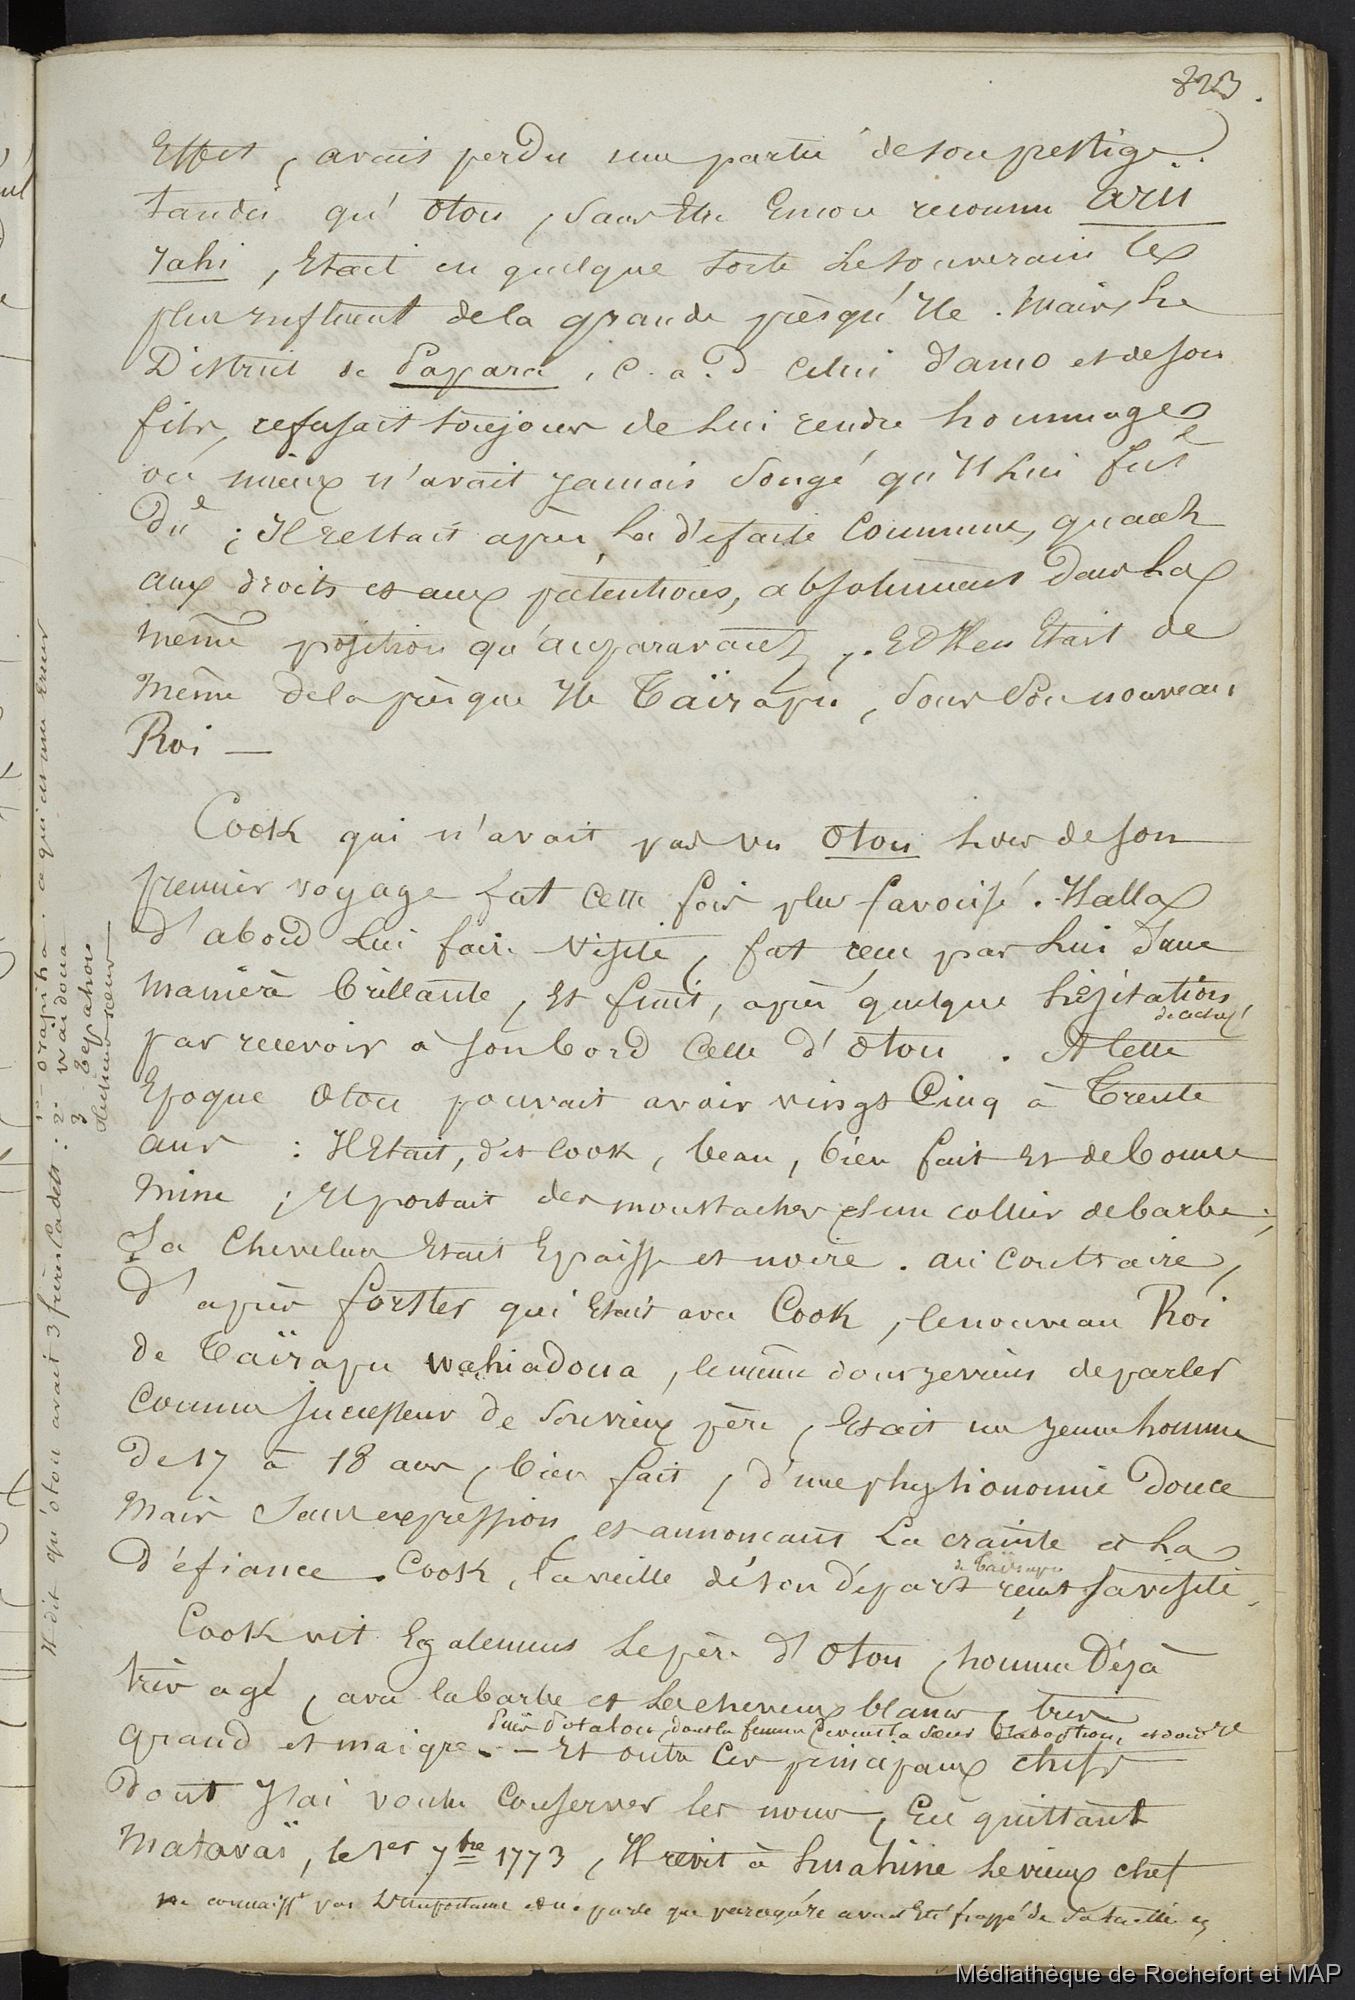 323.
Effet, avait perdu une partie de son prestige.
tandis qu'Otou, sans être Encore reconnu arii
rahi, Etait en quelque sorte le souverain le
plus influent de la grande présqu'Ile. Mais, le
District de Papara, c. a. d celui d'amo et de son
fils, refusait toujours de lui rendre hommage
où mieux n'avait jamais songé qu'Il lui fût
Dû ; Il restait après la défaite Commune, quant
aux droits et aux prétentions, absolument dans la
même position qu'auparavant, Et Il en Etait de
même de la présque Ile Taïrapu, sous son nouveau
Roi —
Cook qui n'avait pas vu Otou lors de son
premier voyage fut cette fois plus favorisé. Il alla
d'abord lui faire visite, fut reçu par lui d'une
manière brillante, Et finit, après quelque hésitation
de ce chef,
par recevoir à son bord celle d'Otou. A cette
Epoque Otou pouvait avoir vingt Cinq à Trente
ans : Il Etait, dit Cook, beau, bien fait Et de bonne
mine ; Il portait des moustaches et un collier de barbe ;
Sa Chevelure Etait Epaisse et noire. au contraire,
d'après forster qui Etait avec Cook, le nouveau Roi
de Taïrapu Wahiadoua, le même dont je viens de parler
Comme Successeur de son vieux père, Etait un jeune homme
De 17 à 18 ans, bien fait, d'une physionomie Douce
mais Sans expression, et annonçant La crainte et la
défiance. Cook, la veille de son départ
de Taïrapu
reçut sa visite.
Cook vit Egalement le père d'Otou, homme Déjà
très agé, avec la barbe et les cheveux blancs, très
grand et maigre. — Et outre Ces principaux chefs
dont J'ai voulu Conserver les noms, En quittant
Matavaï, le 1er 7bre 1773, Il revit à huahine le vieux chef
Il dit qu'otou avait 3 frères Cadets : 1° Orapiha. ce qui est une Erreur
2° Waidoua
3 Tepahou